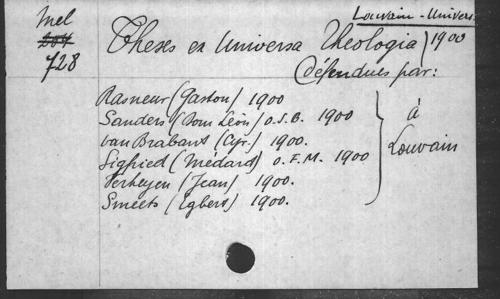 Mel
204
728
Louvain - Univers.
Theses ex Universa Theologia / 1900
(défendues par:
Rasneur (Gaston) 1900
Sanders (Dom Léon) O.S.B. 1900
van Brabant (Cyr.) 1900.
Sigfried (Médard) O.F.M. 1900
Verheyen (Jean) 1900.
Smeets (Egbert) 1900.
à
Louvain